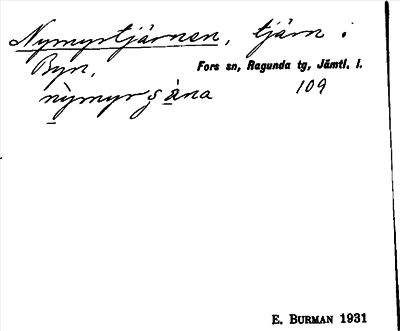 Nymyrtjärnen, tjärn i
Byn, Fors sn, Ragunda tg, Jämtl. l.
nỳmyrʂàna 109
E. BURMAN 1931